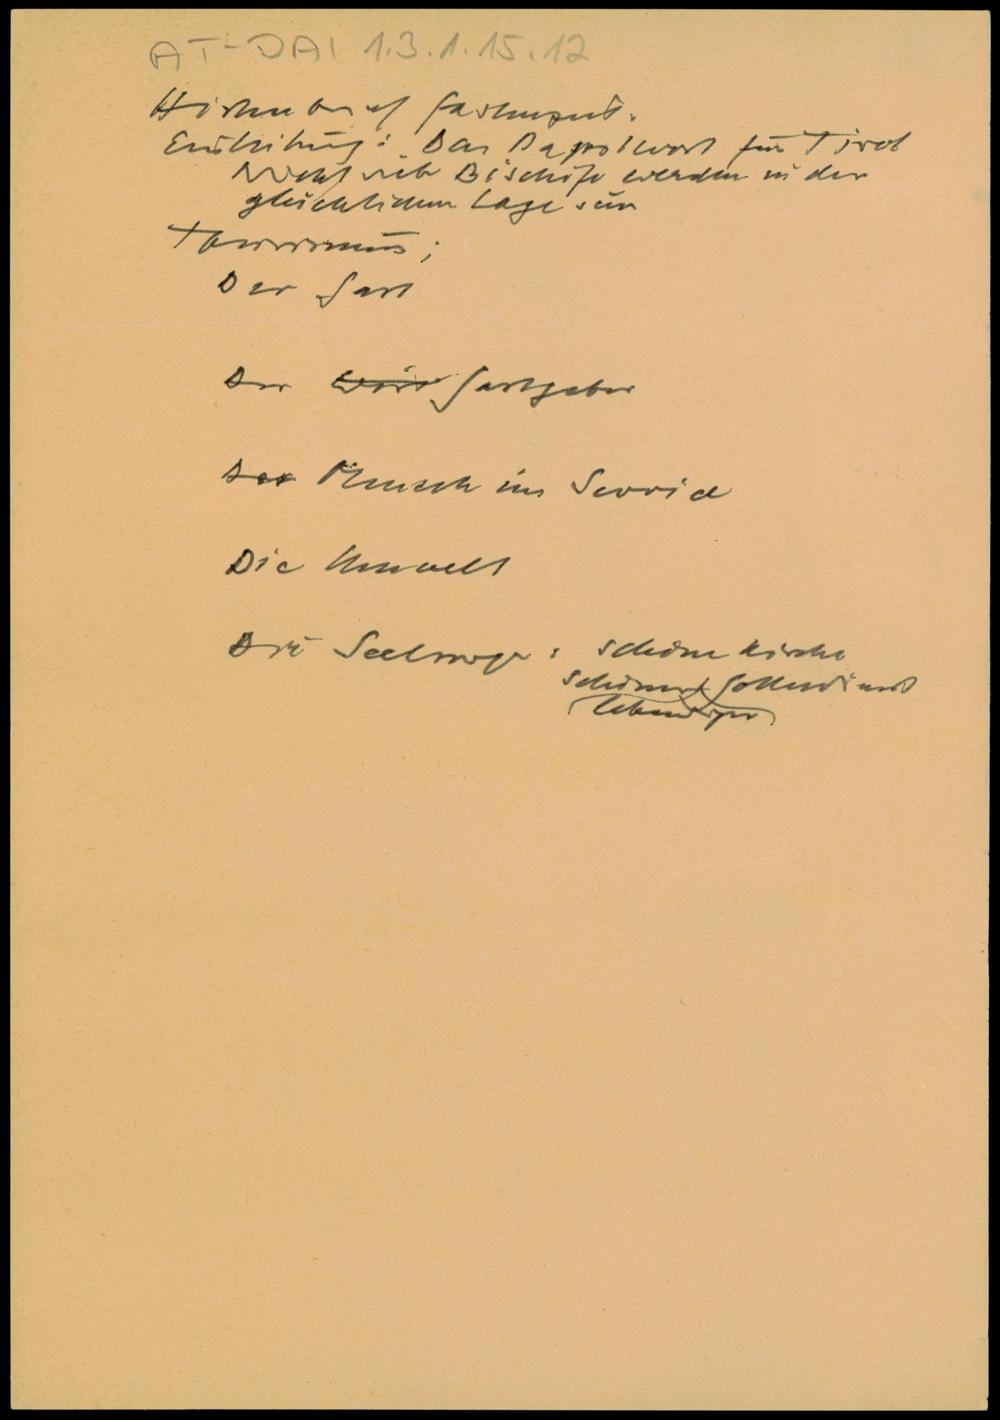 AT-DAI 1.3.1.15.12
Hirtenbrief Gastsein.
Einleitung: Das Papstwort für Tirol
Nicht viele Bischöfe werden in der
glücklichen Lage sein
Tourismus;
Der Gast
Der Wirt Gastgeber
Der Mensch im Service
Die Umwelt
Die Seelsorge: schöne Kirche
schöner Gottesdienst
lebendiger